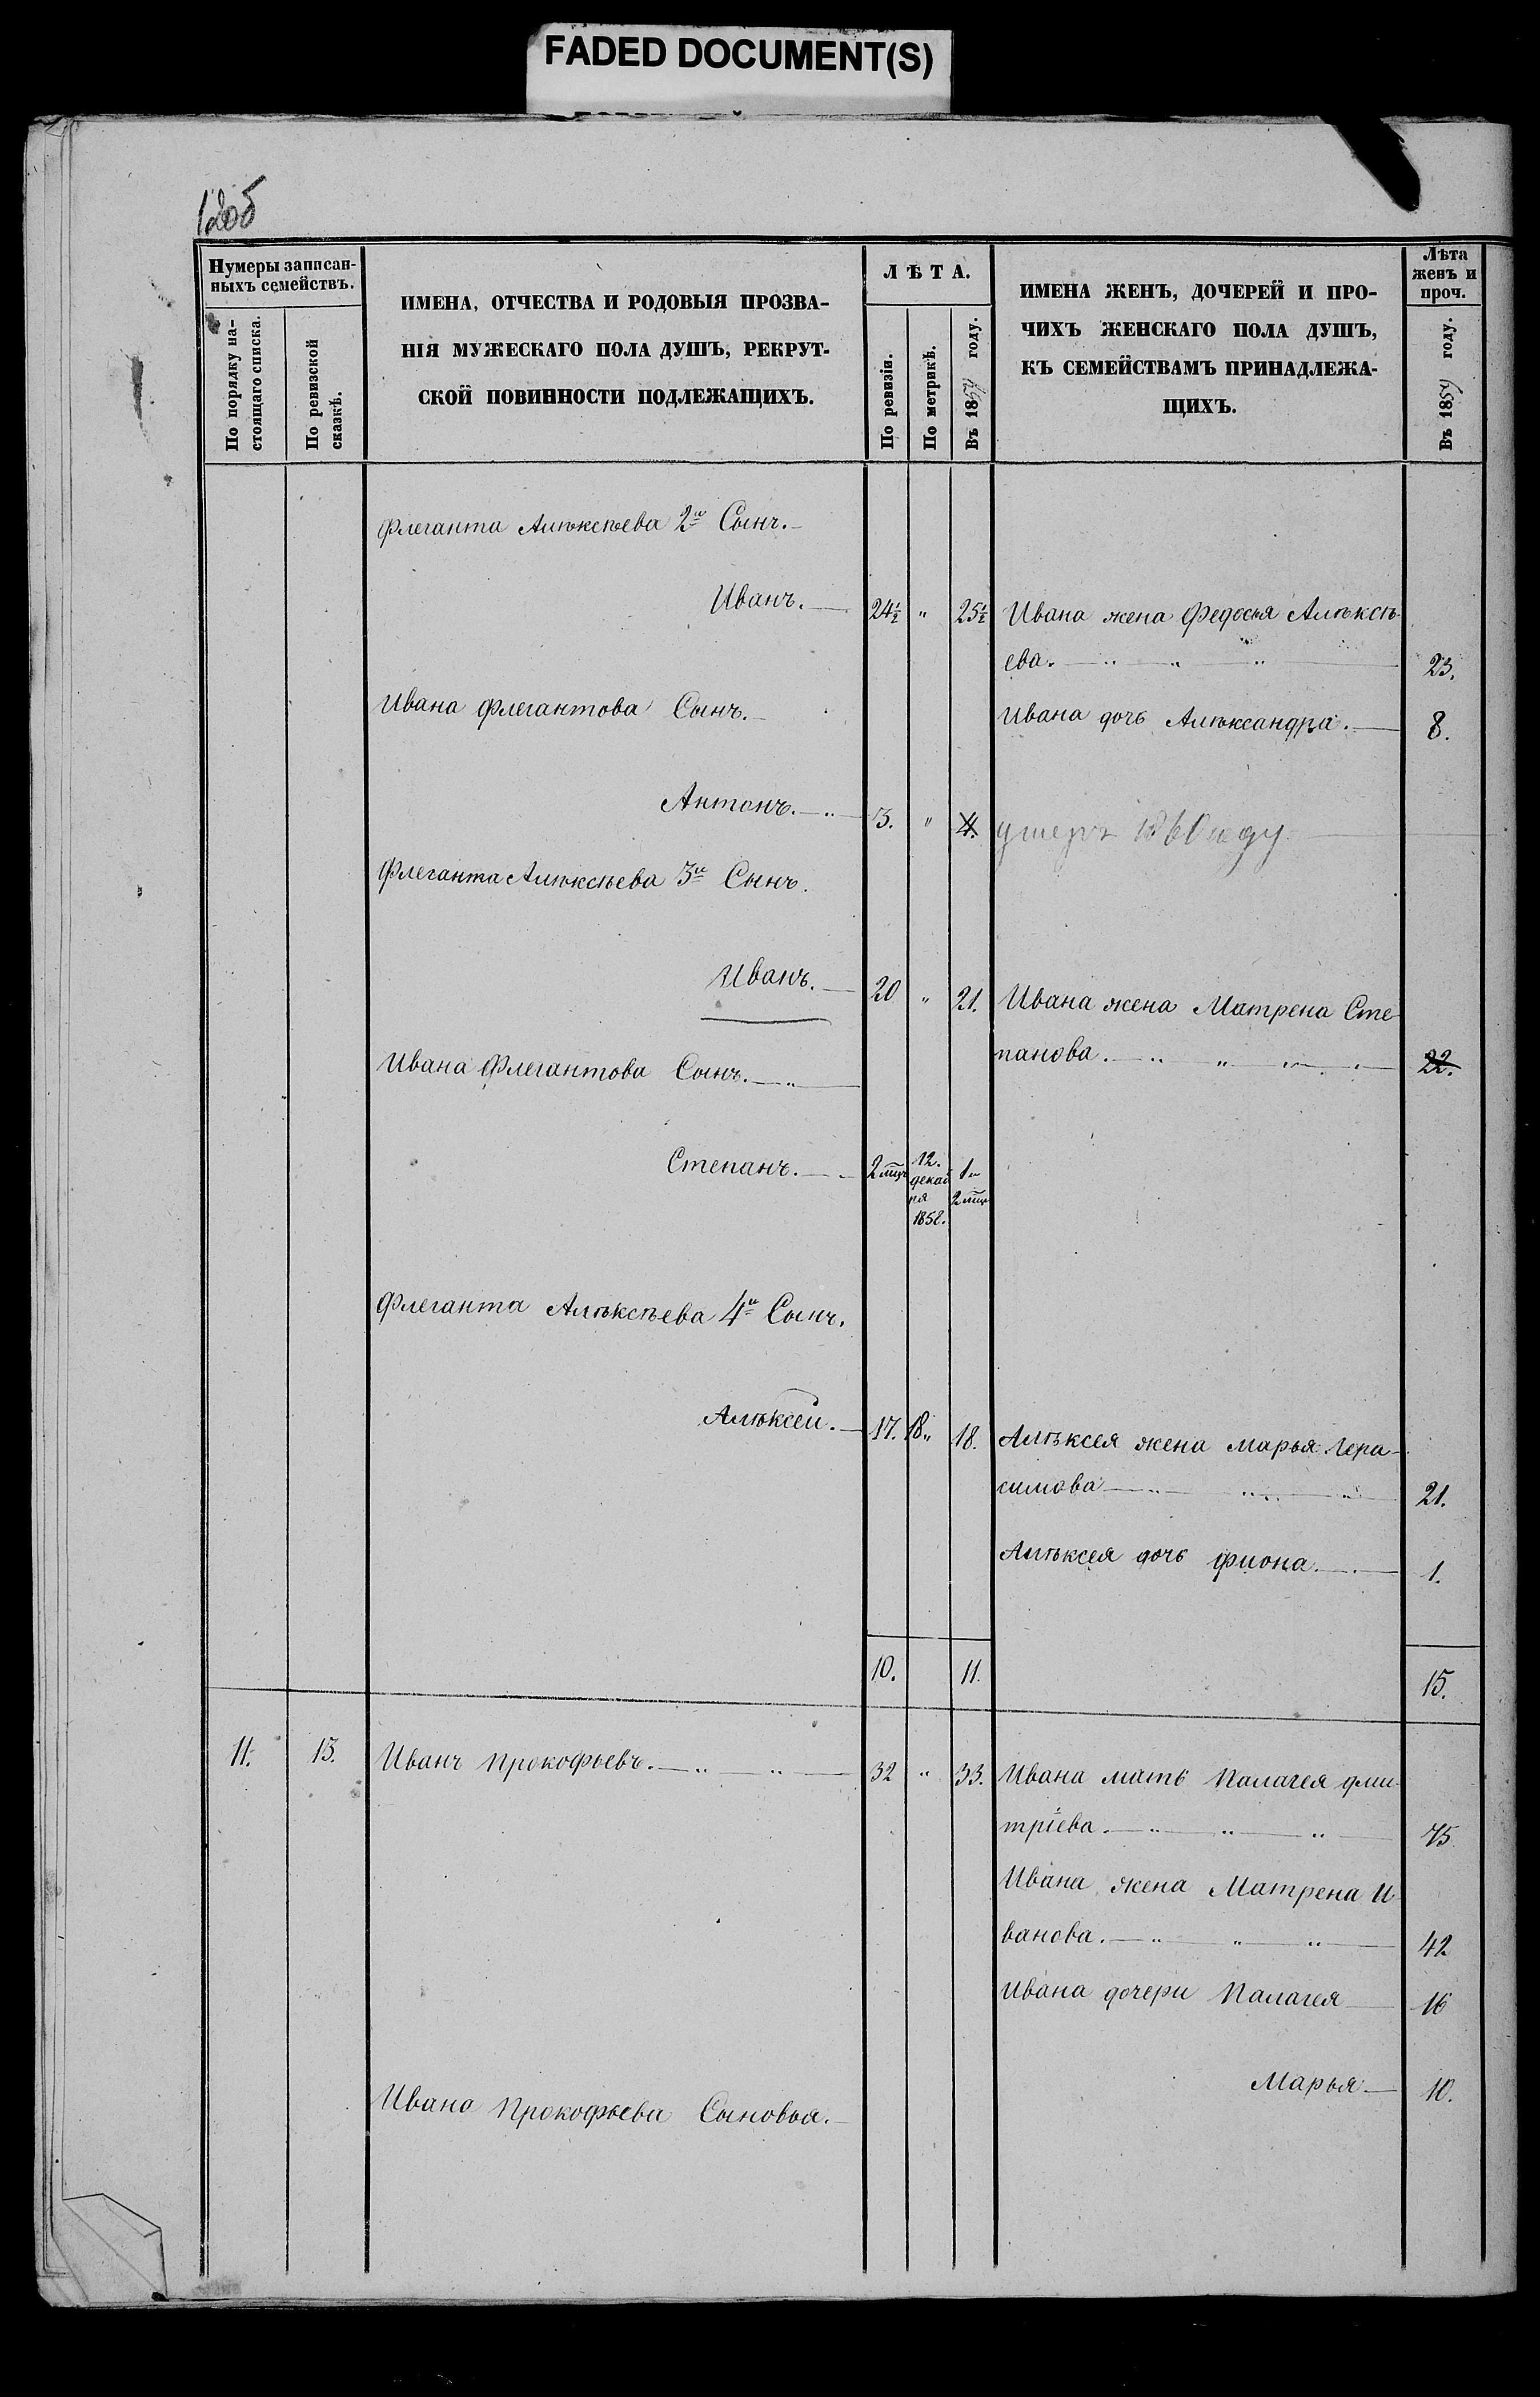 FADED DOCUMENT(S)
120б
Нумеры записан-
ныхъ семействъ.
По порядку на-
стоящаго списка.
По ревизской
сказкѣ.
ИМЕНА, ОТЧЕСТВА И РОДОВЫЯ ПРОЗВА-
НІЯ МУЖЕСКАГО ПОЛА ДУШЪ, РЕКРУТ-
СКОЙ ПОВИННОСТИ ПОДЛЕЖАЩИХЪ.
ЛѢТА.
По ревизіи.
По метрикѣ.
Въ 1859 году.
ИМЕНА ЖЕНЪ, ДОЧЕРЕЙ И ПРО-
ЧИХЪ ЖЕНСКАГО ПОЛА ДУШЪ,
КЪ СЕМЕЙСТВАМЪ ПРИНАДЛЕЖА-
ЩИХЪ.
Лѣта
женъ и
проч.
Въ 1859 году.
Флеганта Алѣксѣева 2й Сынъ.
Иванъ. 24½ " 25½ Ивана жена Федосья Алѣксѣ-
ева. 23.
Ивана Флегантова Сынъ.
Ивана дочь Алѣксандра. 8.
Антонъ. 3. " 4. умеръ 1860 году
Флеганта Алѣксѣева 3й Сынъ.
Иванъ. 20 " 21. Ивана жена Матрена Сте-
панова. 22.
Ивана Флегантова Сынъ.
Степанъ. 2 мцъ 12. декаб
ря 1858. 1 и
2 мцъ
Флеганта Алѣксѣева 4й Сынъ.
Алѣксей. 17. 18 " 18. Алѣксея жена Марья Гера-
симова 21.
Алѣксея дочь Фиона. 1.
10. 11. 15.
11. 13. Иванъ Прокофьевъ. 32 " 33. Ивана мать Палагея Дми-
тріева. 75
Ивана жена Матрена И-
ванова. 42
Ивана дочери Палагея 16
Марья 10.
Ивана Прокофьева Сыновья.